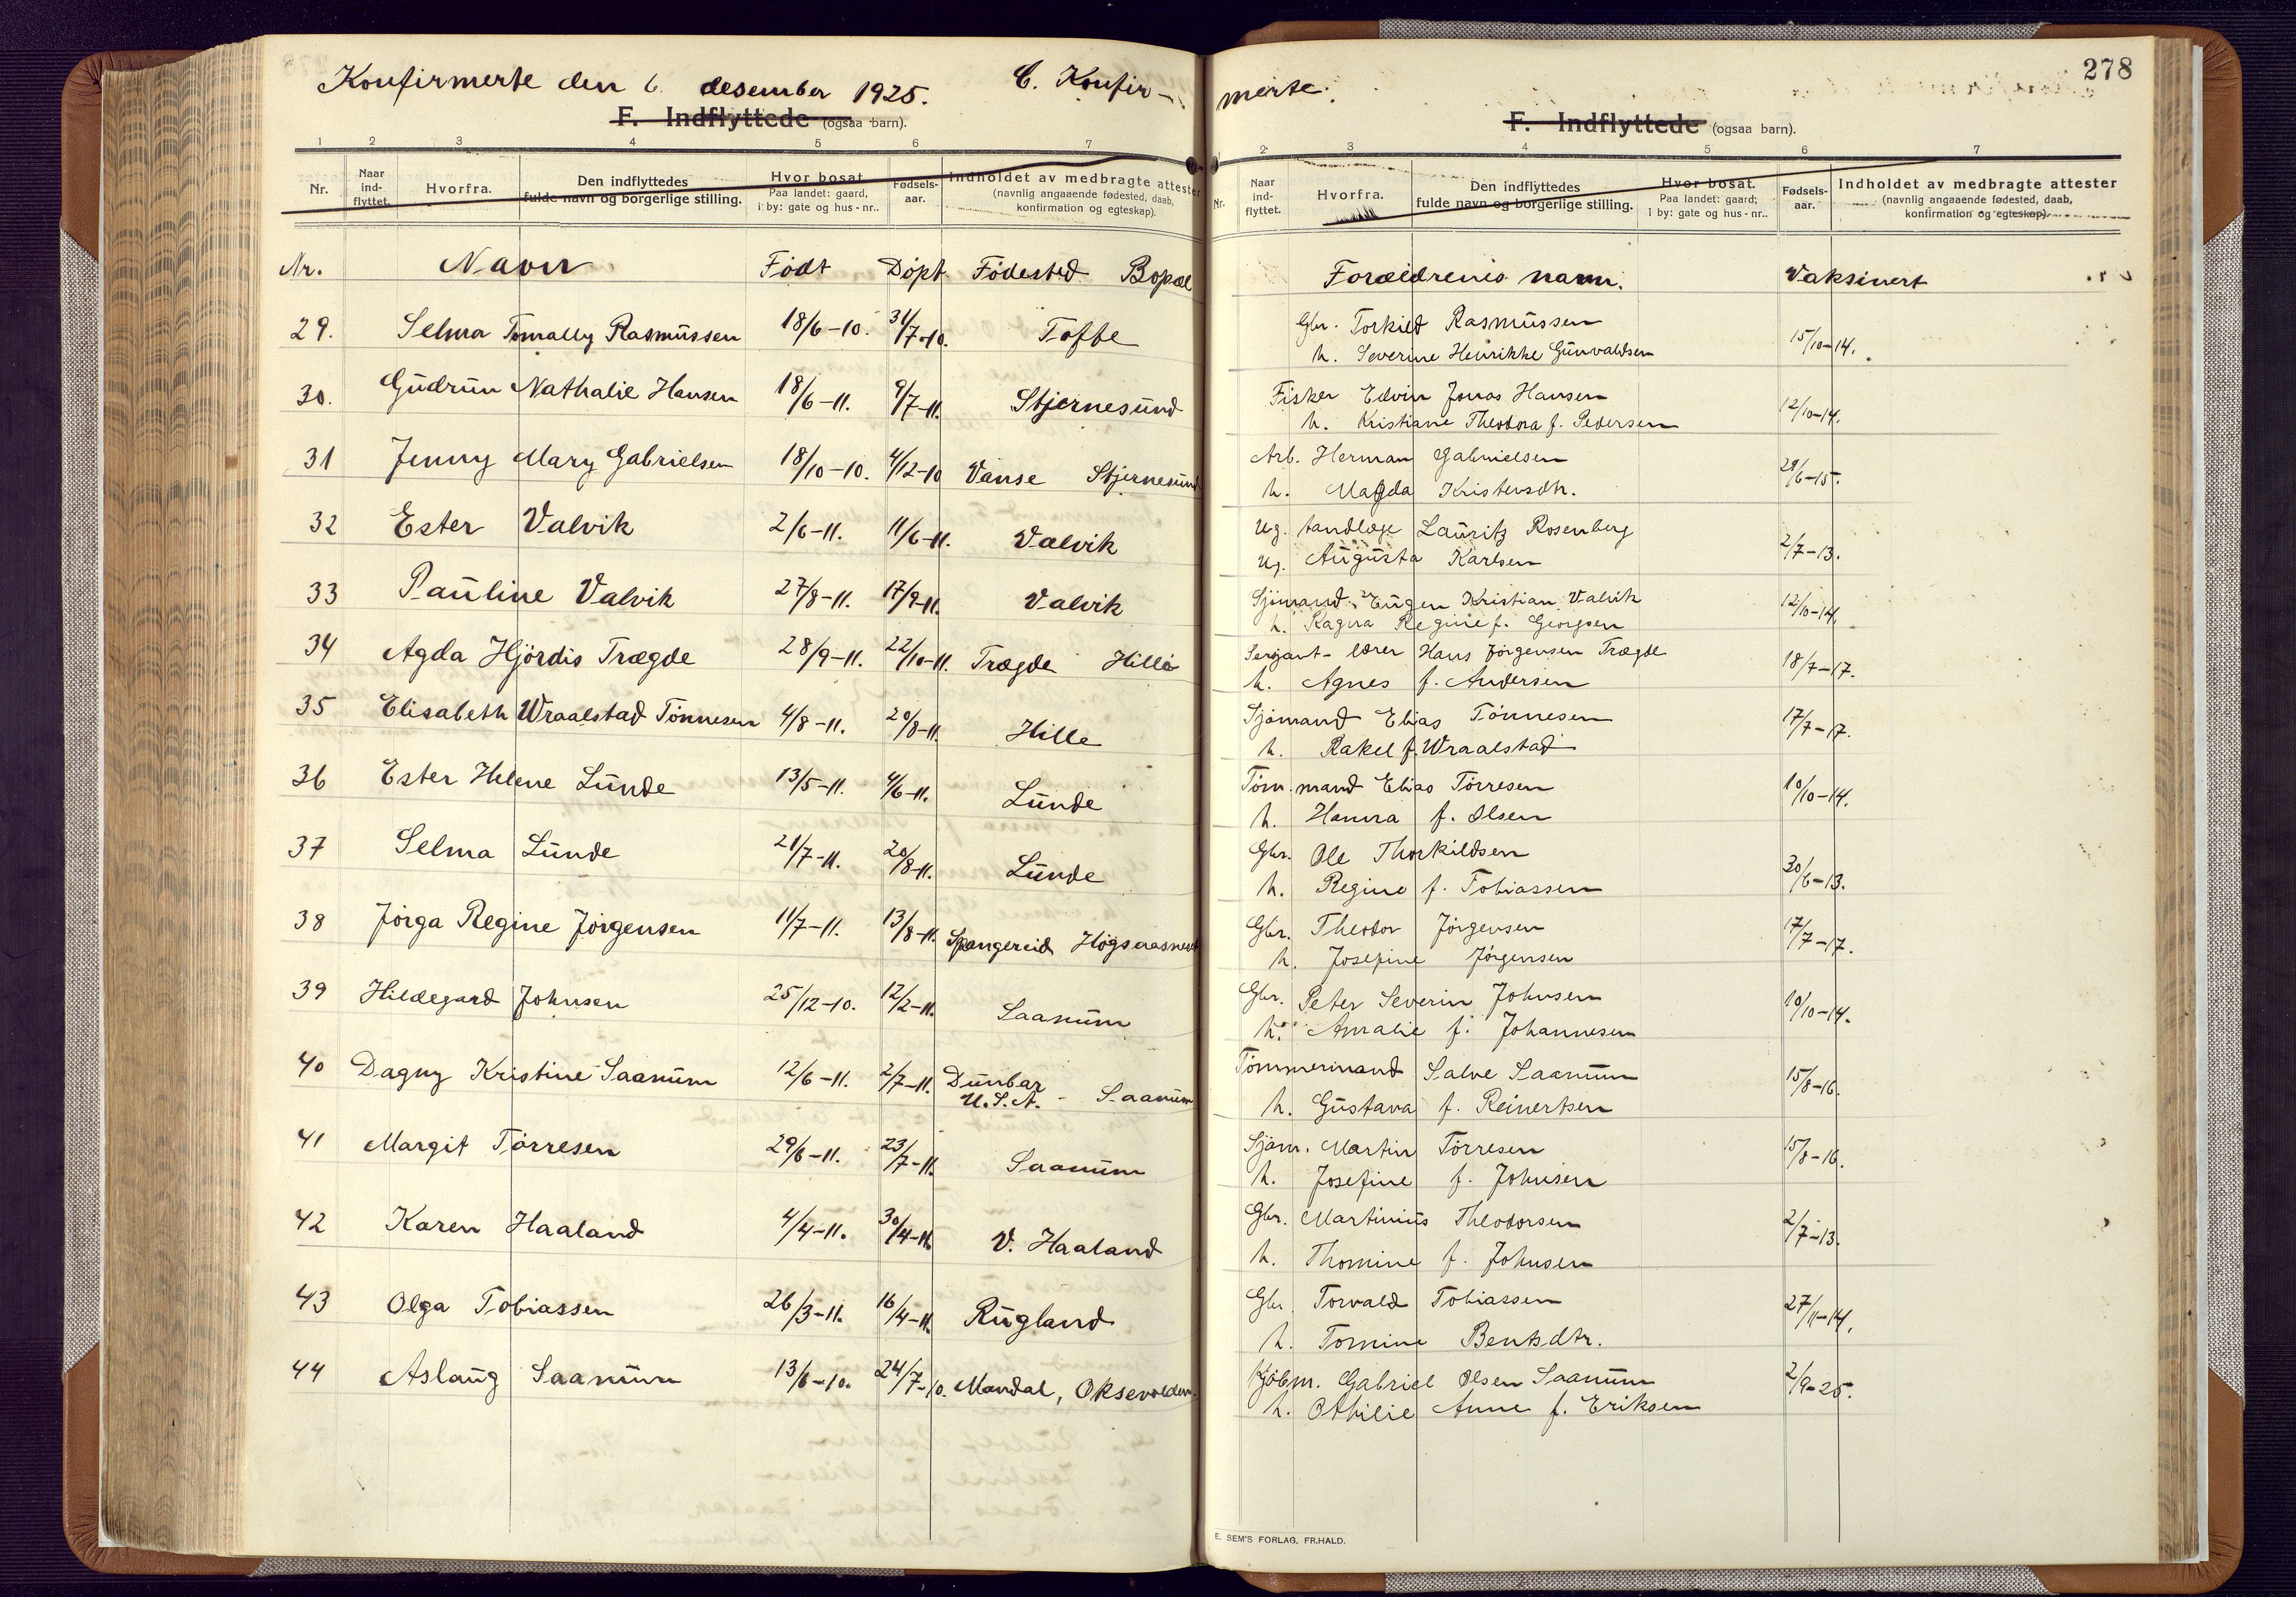 278
Konfirmerte den 6. desember 1925. C. Konfir-merte.
F. Indflyttede (ogsaa barn).
F. Indflyttede (ogsaa barn).
1 2 3 4 5 6 7
2 3 4 5 6 7
Nr. Naar ind-flyttet. Hvorfra. Den indflyttedes fulde navn og borgerlige stilling. Hvor bosat. Paa landet: gaard, i by: gate og hus-nr.. Fødsels-aar. Indholdet av medbragte attester (navnlig angaaende fødested, daab, konfirmation og egteskap).
Nr. Naar ind-flyttet. Hvorfra. Den indflyttedes fulde navn og borgerlige stilling. Hvor bosat. Paa landet: gaard; i by: gate og hus-nr.. Fødsels-aar. Indholdet av medbragte attester (navnlig angaaende fødested, daab, konfirmation og egteskap).
Nr. Navn Født Døpt Fødested Bopæl Forældrenes navn. Vaksinert
29. Selma Tomally Rasmussen 18/6-10. 31/7-10. Tofte Gbr. Torkild Rasmussen 15/10-14.
h. Severine Henrikke Gunvaldsen
30. Gudrun Nathalie Hansen 18/6-11. 9/7-11. Stjernesund Fisker Edvin Jonas Hansen 12/10-14.
h. Kristiane Theodora f. Pedersen
31 Jenny Mary Gabrielsen 18/10-10. 4/12-10 Vanse Stjernesund Arb. Herman Gabrielsen 28/6-15.
h. Magda Kristensdtr.
32 Ester Valvik 2/6-11. 11/6-11. Valvik Ug. tandlæge Lauritz Rosenberg 2/7-13.
Ug. Augusta Karlsen
33 Pauline Valvik 27/8-11. 17/9-11. Valvik Sjømand Eugen Kristian Valvik 12/10-14.
h. Ragna Regine f. Georgsen
34 Agda Hjørdis Trægde 28/9-11. 22/10-11. Trægde Hille Serjant-lærer Hans Jørgensen Trægde 18/7-17.
h. Agnes f. Andersen
35 Elisabeth Wraalstad Tønnesen 4/8-11. 20/8-11. Hille Sjømand Elias Tønnesen 17/7-17.
h. Rakel f. Wraalstad
36 Ester Helene Lunde 13/5-11. 4/6-11. Lunde Tøm.mand Elias Tørresen 10/10-14.
h. Hanna f. Olsen
37 Selma Lunde 21/7-11. 20/8-11. Lunde Gbr. Ole Thorkildsen 30/6-13.
h. Regine f. Tobiassen
38 Jørga Regine Jørgensen 11/7-11. 13/8-11. Spangereid Høgsaasneset Gbr. Theodor Jørgensen 17/7-17.
h. Josefine Jørgensen
39 Hildegard Johnsen 25/12-10. 12/2-11. Saanum Gbr. Peter Severin Johnsen 10/10-14.
h. Amalie f. Johannesen
40 Dagny Kristine Saanum 12/6-11. 2/7-11. Dunbar U.S.A. - Saanum Tømmermand Salve Saanum 15/8-16.
h. Gustava f. Reinertsen
41 Margit Tørresen 29/6-11. 23/7-11. Saanum Sjøm. Martin Tørresen 15/8-16.
h. Josefine f. Johnsen
42 Karen Haaland 4/4-11. 30/4-11. V. Haaland Gbr. Martinius Theodorsen 2/7-13.
h. Thomine f. Johnsen
43 Olga Tobiassen 26/3-11. 16/4-11. Rugland Gbr. Torvald Tobiassen 27/11-14.
h. Tomine Bentsdtr.
44 Aslaug Saanum 13/6-10. 24/7-10. Mandal, Oksevolden. Kjøbm. Gabriel Olsen Saanum 2/9-25.
h. Othilie Anne f. Eriksen
E. SEM'S FORLAG, FR.HALD.